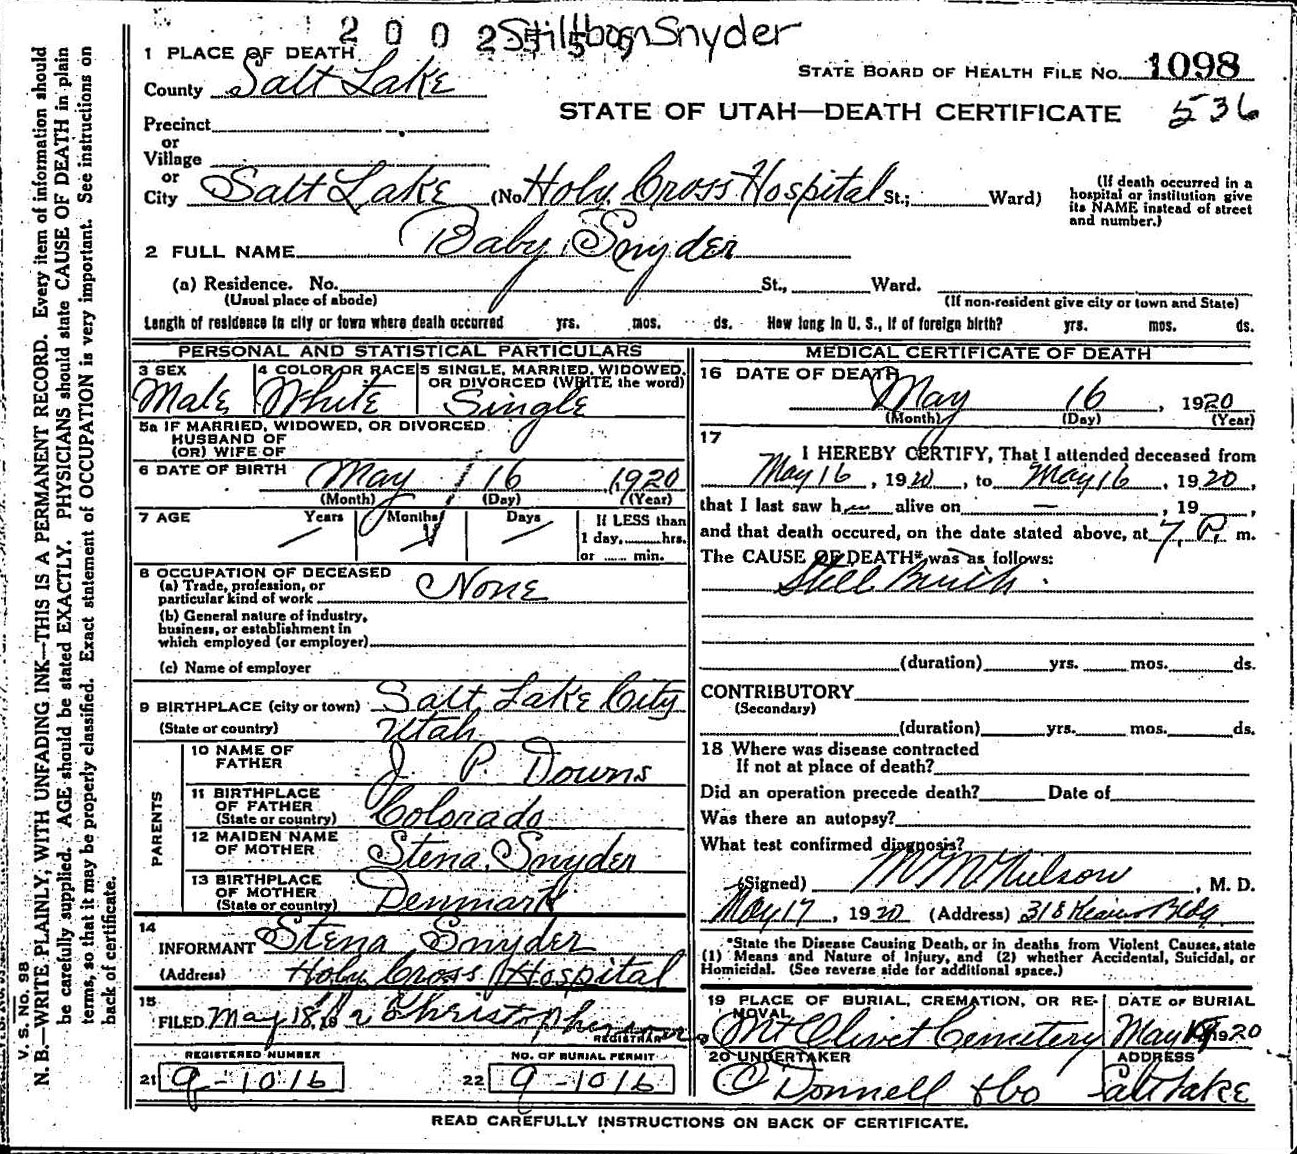 2 0 0 2 Stillborn Snyder
1 PLACE OF DEATH
County Salt Lake
STATE BOARD OF HEALTH FILE NO. 1098
STATE OF UTAH—DEATH CERTIFICATE 536
Precinct
or
Village
or
City Salt Lake (No Holy Cross Hospital St.; Ward)
(If death occurred in a
hospital or institution give
its NAME instead of street
and number.)
2 FULL NAME Baby Snyder
(a) Residence. No. St., Ward.
(Usual place of abode) (If non-resident give city or town and State)
Length of residence in city or town where death occurred yrs. mos. ds. How long in U. S., if of foreign birth? yrs. mos. ds.
PERSONAL AND STATISTICAL PARTICULARS
3 SEX 4 COLOR OR RACE 5 SINGLE, MARRIED, WIDOWED,
OR DIVORCED (WRITE the word)
Male White Single
5a IF MARRIED, WIDOWED, OR DIVORCED
HUSBAND OF
(OR) WIFE OF
6 DATE OF BIRTH May 16 1920
(Month) (Day) (Year)
7 AGE Years Months Days If LESS than
1 day, hrs.
or min.
8 OCCUPATION OF DECEASED
(a) Trade, profession, or
particular kind of work None
(b) General nature of industry,
business, or establishment in
which employed (or employer)
(c) Name of employer
9 BIRTHPLACE (city or town) Salt Lake City
(State or country) Utah
PARENTS
10 NAME OF
FATHER J P. Downs
11 BIRTHPLACE
OF FATHER
(State or country) Colorado
12 MAIDEN NAME
OF MOTHER Stena Snyder
13 BIRTHPLACE
OF MOTHER
(State or country) Denmark
14
INFORMANT Stena Snyder
(Address) Holy Cross Hospital
15
FILED May 18, 19
REGISTRAR
REGISTERED NUMBER NO. OF BURIAL PERMIT
21 9-1016 22 9-1016
MEDICAL CERTIFICATE OF DEATH
16 DATE OF DEATH
May 16, 1920
(Month) (Day) (Year)
17
I HEREBY CERTIFY, That I attended deceased from
May 16, 1920, to May 16, 1920,
that I last saw h alive on —, 19 ,
and that death occured, on the date stated above, at 7 P. m.
The CAUSE OF DEATH* was as follows:
Still Birth.
(duration) yrs. mos. ds.
CONTRIBUTORY
(Secondary)
(duration) yrs. mos. ds.
18 Where was disease contracted
If not at place of death?
Did an operation precede death? Date of
Was there an autopsy?
What test confirmed diagnosis?
(Signed) M M Nielson, M. D.
May 17, 1920 (Address) 318 Kearns Bldg
*State the Disease Causing Death, or in deaths from Violent Causes, state
(1) Means and Nature of Injury, and (2) whether Accidental, Suicidal, or
Homicidal. (See reverse side for additional space.)
19 PLACE OF BURIAL, CREMATION, OR RE-
MOVAL
DATE OF BURIAL
Mt Olivet Cemetery May 1920
20 UNDERTAKER ADDRESS
O'Donnell & Co Salt Lake
READ CAREFULLY INSTRUCTIONS ON BACK OF CERTIFICATE.
V. S. No. 98
N. B.—WRITE PLAINLY, WITH UNFADING INK—THIS IS A PERMANENT RECORD. Every item of information should
be carefully supplied. AGE should be stated EXACTLY. PHYSICIANS should state CAUSE OF DEATH in plain
terms, so that it may be properly classified. Exact statement of OCCUPATION is very important. See instructions on
back of certificate.